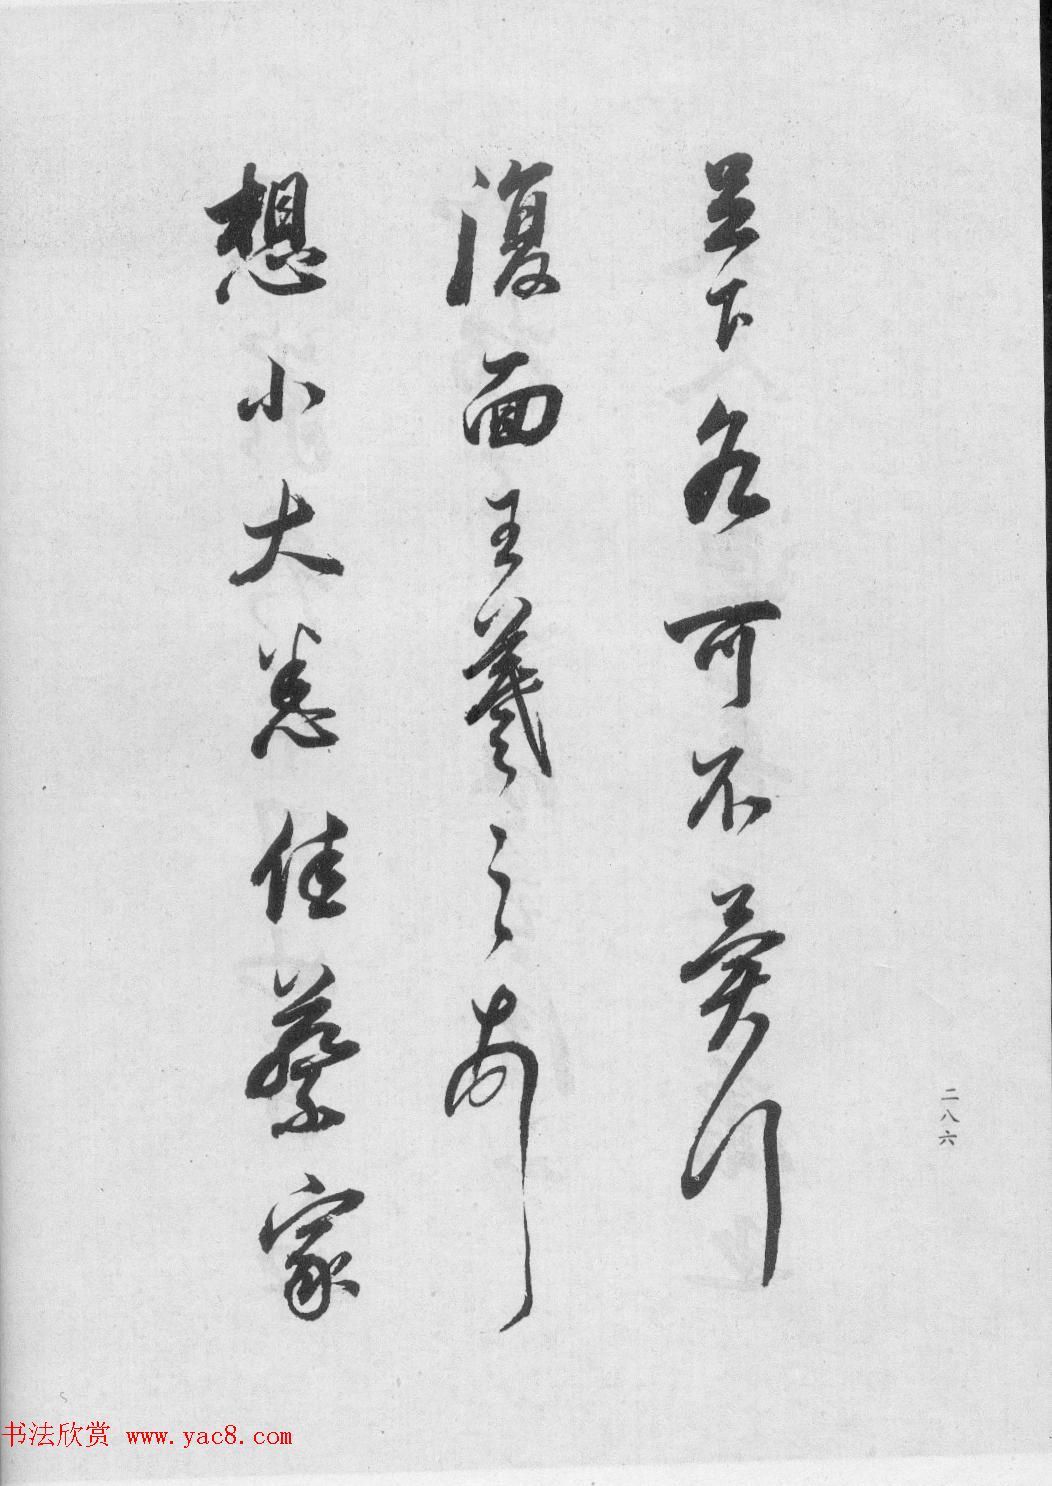 足下各可不冀行
復面王羲之
想小大悉佳蔡家
二八六
书法欣赏 www.yac8.com